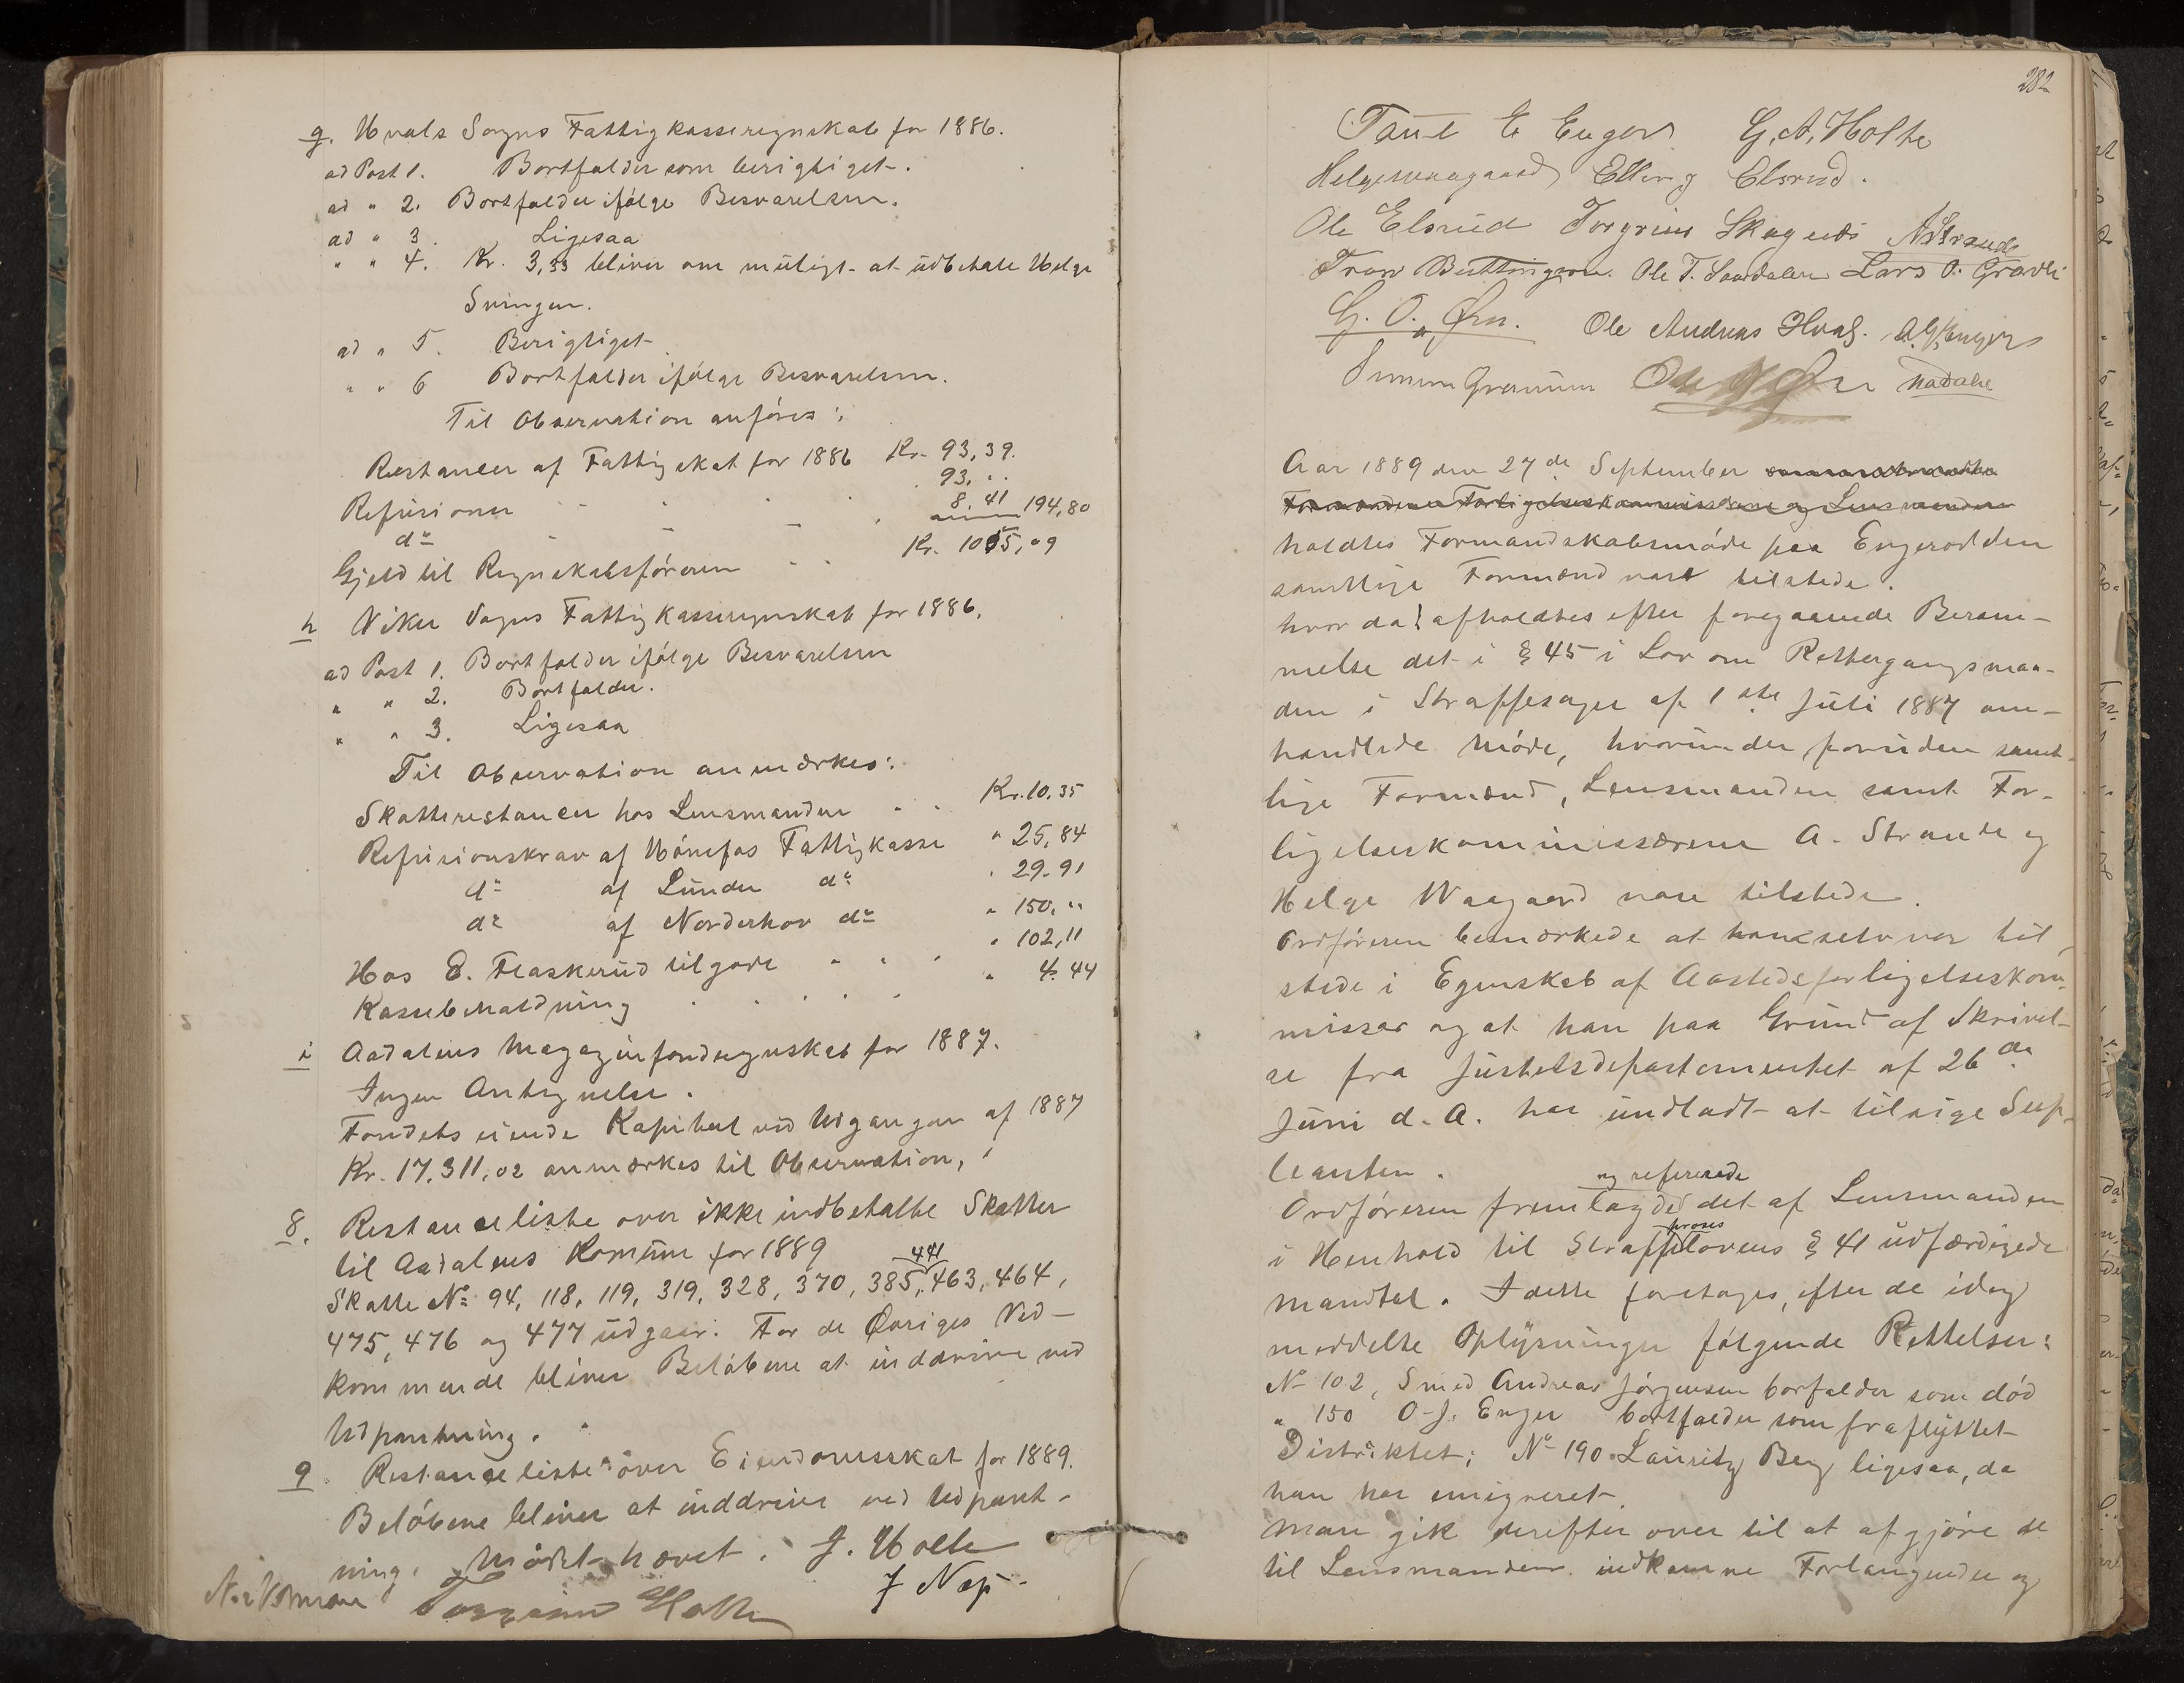 g. Hvals Sogns Fattigkasseregnskab for 1886.
ad Post 1. Bortfalder som berigtiget.
ad " 2. Bortfalder ifølge Besvarelsen.
ad " 3. Ligesaa
" " 4. Kr. 3,33 bliver om muligt at udbetale Helge
Svingen.
ad " 5. Berigtiget
" " 6 Bortfalder ifølge Besvarelsen.
Til Observation anføres:
Restancer af Fattigskat for 1886 Kr. 93,39.
Refusioner 93, "
do 8,41 194,80
Gjeld til Regnskabsføreren Kr. 1055,09
h Viker Sogns Fattigkasseregnskab for 1886.
ad Post 1. Bortfalder ifølge Besvarelsen
" " 2. Bortfalder.
" " 3. Ligesaa
Til Observation anmærkes:
Skatterestancer hos Lensmanden Kr. 10.35
Refusionskrav af Hønefos Fattigkasse " 25,84
do af Lunder do " 29.91
do af Norderhov do " 150, "
Hos E. Flaskerud tilgode " 102,11
Kassebeholdning " 4.44
i Aadalens Magazinfondregnskab for 1887.
Ingen Antegnelse.
Fondets eiende Kapital ved Udgangen af 1887
Kr. 17.311,02 anmærkes til Observation,
8. Restanceliste over ikke indbetalte Skatter
til Aadalens Komune for 1889
441
Skatte No 94, 118, 119, 319, 328, 370, 385, 463, 464,
475, 476 og 477 udgaar. For de Øvriges Ved-
kommende bliver Beløbene at inddrive ved
Udpantning.
9. Restanceliste over Eiendomsskat for 1889.
Beløbene bliver at inddrive ved Udpant-
ning. Mødet hævet. J. Holte
Torgeir Holte J Næs
282
E Enger G. A. Holte
Helge Waagaard Elling Elsrud.
Ole Elsrud Torgrim Skagnæs A Strande
Tron Buttingsrud. Ole T. Lars O. Gravli
G. O. Øen. Ole Andreas Hval.
Ole
Aar 1889 den 27de September
Forligelseskommissærene og Lensmanden
holdtes Formandskabsmøde paa Engerodden
samtlige Formænd vare tilstede.
hvor da afholdtes efter foregaaende Beram-
melse det i § 45 i Lov om Rettergangsmaa-
den i Straffesager af 1ste Juli 1887 om-
handlede Møde, hvorunder foruden samt-
lige Formænd, Lensmanden samt For-
ligelseskommissærene A. Strande og
Helge Waagaard vare tilstede.
Ordføreren bemærkede at han selv var til-
stede i Egenskab af Aastedsforligelseskom-
missær og at han paa Grund af Skrivel-
se fra Justitsdepartementet af 26de
Juni d. A. har undladt at tilsige Sup-
leanten.
og refererede
Ordføreren fremlagde det af Lensmanden
proses
i Henhold til Straffelovens § 41 udfærdigede
Mandtal. I dette foretages, efter de idag
meddelte Oplysninger følgende Rettelser:
No 102, Smed Andreas Jørgensen borfalder som død
" 150 O. J. Enger bortfalder som fraflyttet
Distriktet; No 190 Lauritz Berg ligesaa, da
han har emigreret.
Man gik derefter over til at afgjøre de
til Lensmanden indkomne Forlangender og